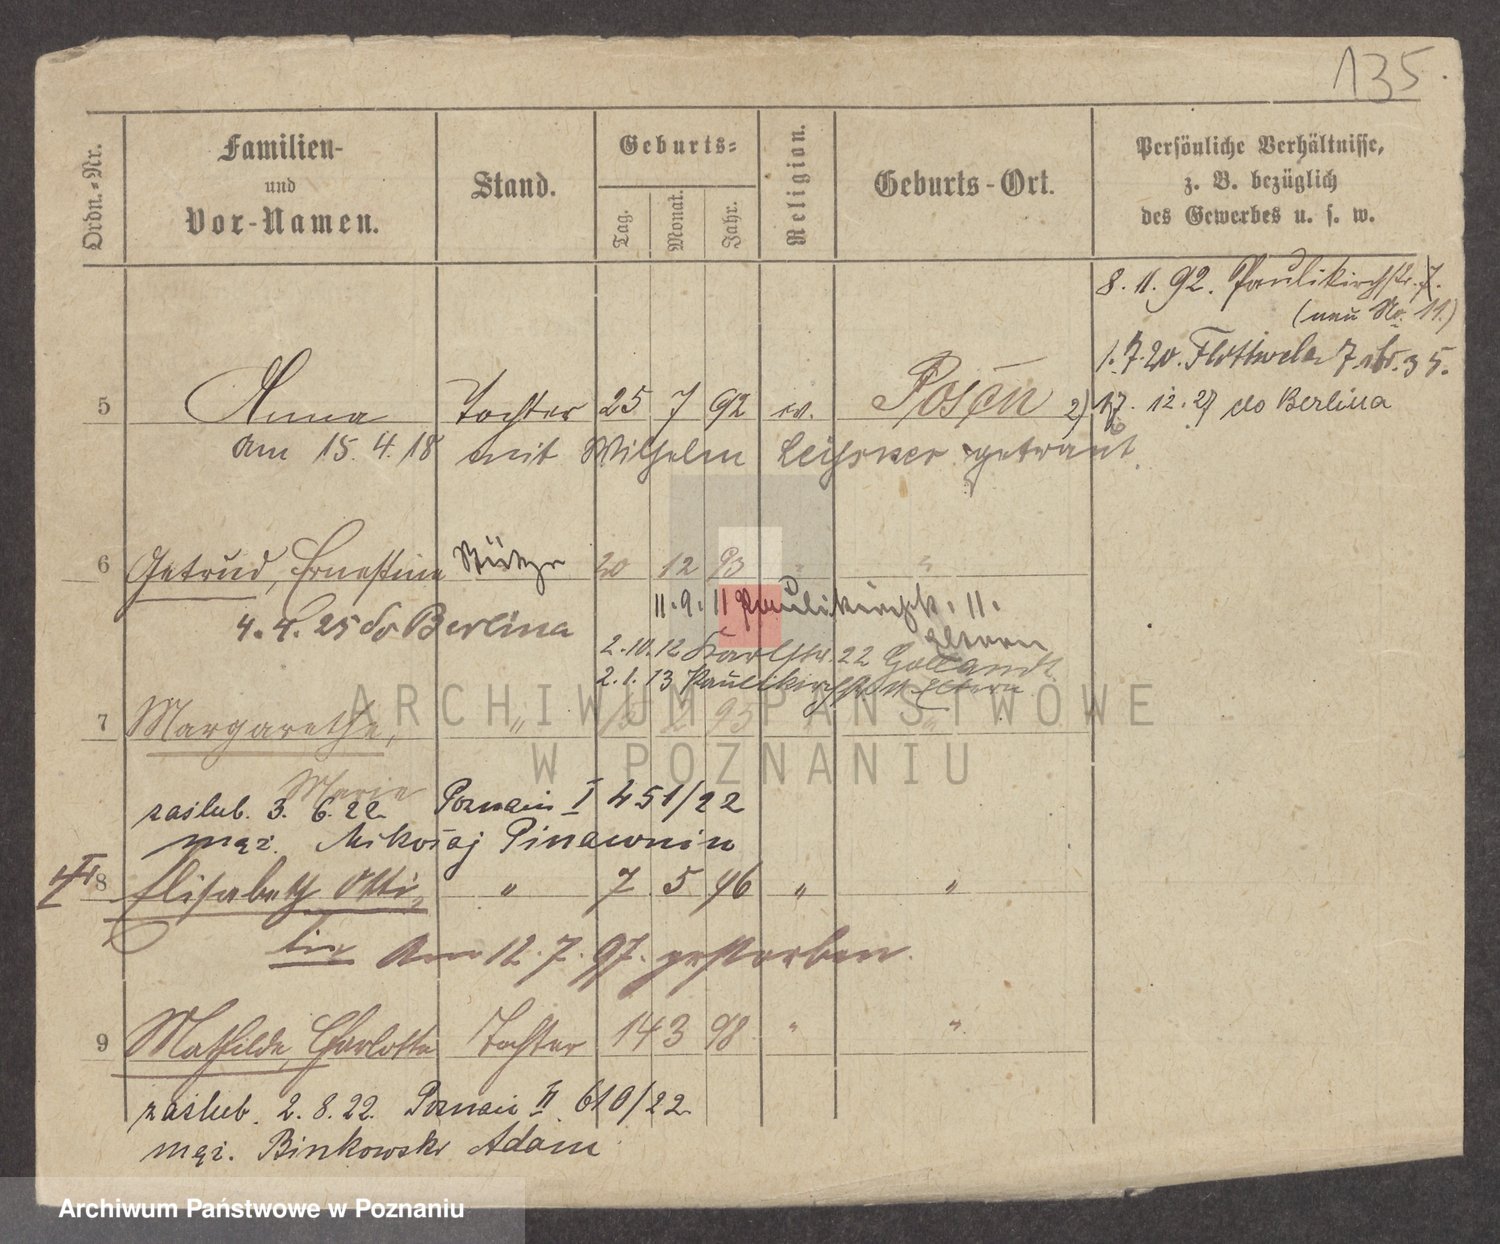 135.
Ordn.-Nr.
Familien-
und
Vor-Namen.
Stand.
Geburts-
Tag.
Monat.
Jahr.
Religion.
Geburts-Ort.
Persönliche Verhältnisse,
z. B. bezüglich
des Gewerbes u. s. w.
8. 11. 92. Paulikirchstr. 7.
(neu No. 11.)
1. 7. 20. Flottwela 7
5 Anna Tochter 25 7 92 ev. Posen 2) 17. 12. 27 do Berlina
Am 15. 4. 18 mit Wilhelm Leissner getraut.
6 Getrud, Ernestine 20 12 93 " "
11. 9. 11 Paulikirchstr. 11.
Eltern
4. 4. 25 do Berlina
2. 10. 12 Karlstr. 22
2. 1. 13 Paulikirchstr. 11 Eltern
7 Margarethe, " 2 95 " "
Marie
zaślub. 3. 6. 22. Poznań I 451/22
mąż. Mikołaj Pinawnin
8 Elisabeth Otti, " 7 5 96 " "
lie Am 12. 7. 97. gestorben.
9 Mathilde, Charlotte Tochter 14 3 98 " "
zaślub. 2. 8. 22. Poznań II 610/22
mąż. Binkowski Adam
ARCHIWUM PAŃSTWOWE
W POZNANIU
Archiwum Państwowe w Poznaniu